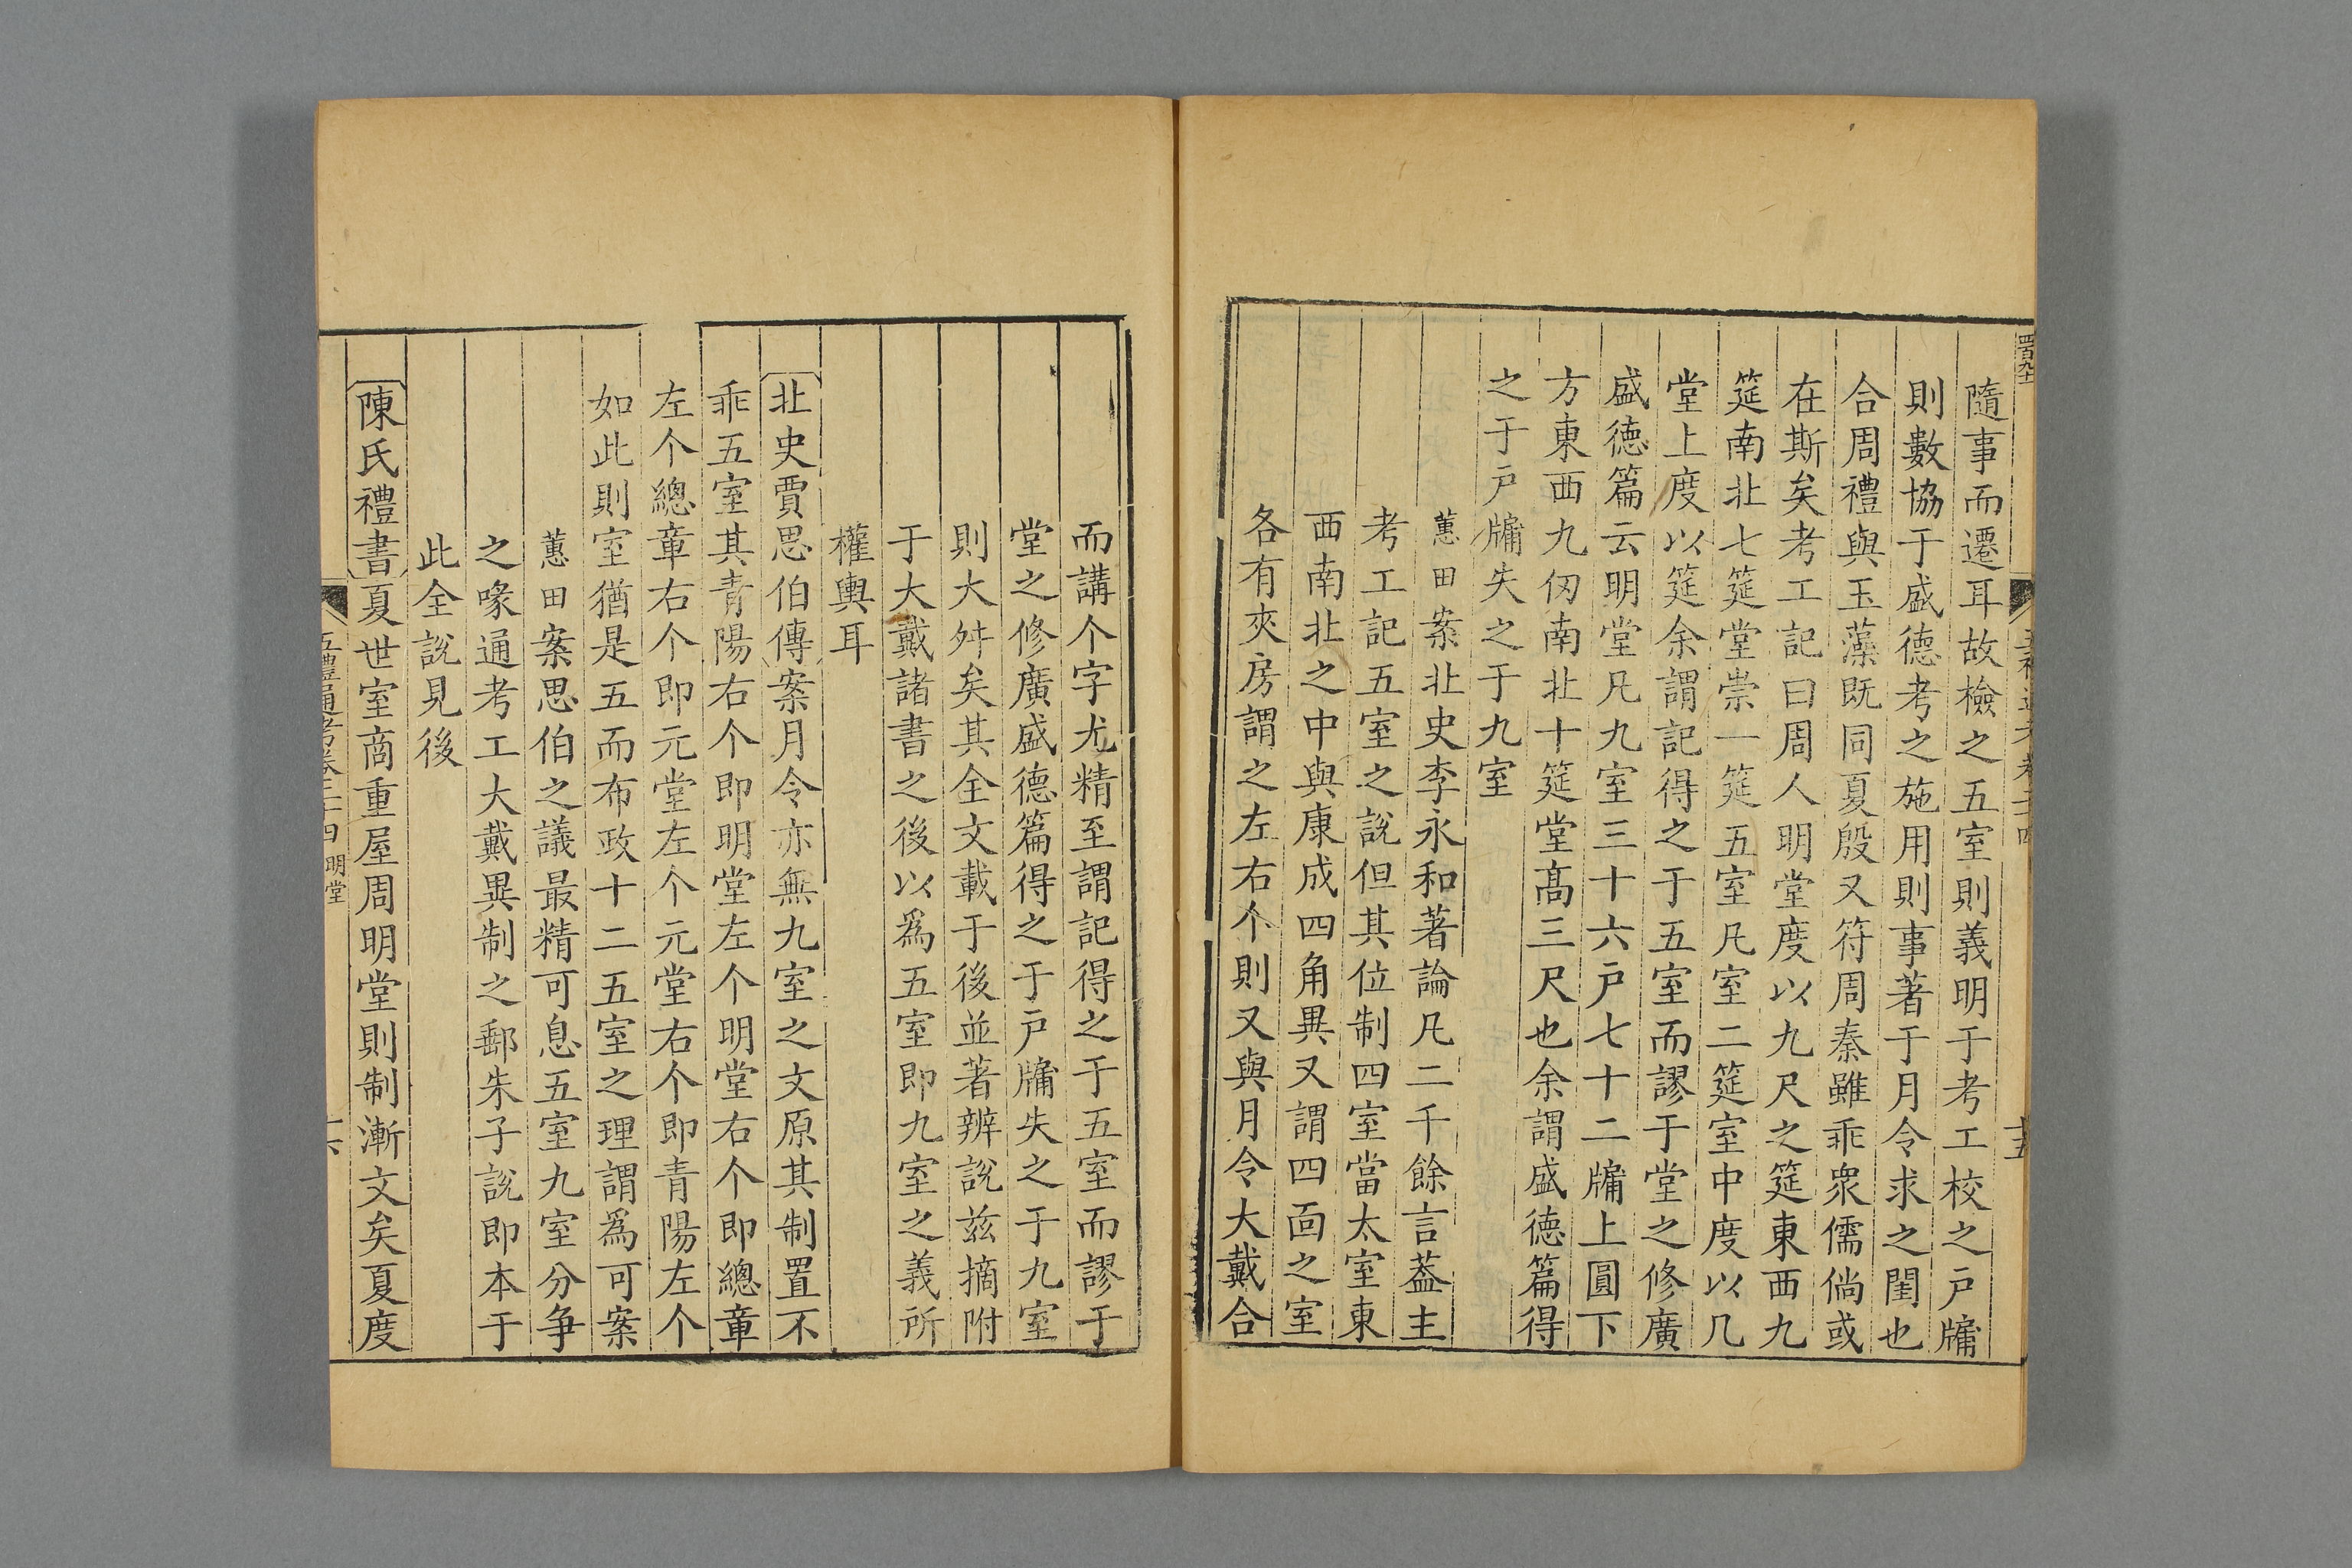 隨事而遷耳故檢之五室則義明于考工校之戶牖
則數協于盛德考之施用則事著于月令求之閨也
合周禮與玉藻既同夏殷又符周秦雖乖衆儒倘或
在斯矣考工記曰周人明堂度以九尺之筵東西九
筵南北七筵堂崇一筵五室凡室二筵室中度以几
堂上度以筵余謂記得之于五室而謬于堂之修廣
盛德篇云明堂凡九室三十六戶七十二牖上圓下
方東西九仞南北十筵堂高三尺也余謂盛德篇得
之于戶牖失之于九室
蕙田案北史李永和著論凡二千餘言蓋主
考工記五室之說但其位制四室當太室東
西南北之中與康成四角異又謂四面之室
各有夾房謂之左右个則又與月令大戴合
而講个字尤精至謂記得之于五室而謬于
堂之修廣盛德篇得之于戶牖失之于九室
則大舛矣其全文載于後並著辨說茲摘附
于大戴諸書之後以為五室即九室之義所
權輿耳
北史賈思伯傳案月令亦無九室之文原其制置不
乖五室其青陽右个即明堂左个明堂右个即總章
左个總章右个即元堂左个元堂右个即青陽左个
如此則室猶是五而布政十二五室之理謂為可案
蕙田案思伯之議最精可息五室九室分爭
之喙通考工大戴異制之郵朱子說即本于
此全說見後
陳氏禮書夏世室商重屋周明堂則制漸文矣夏度
五禮通考卷二十四 明堂